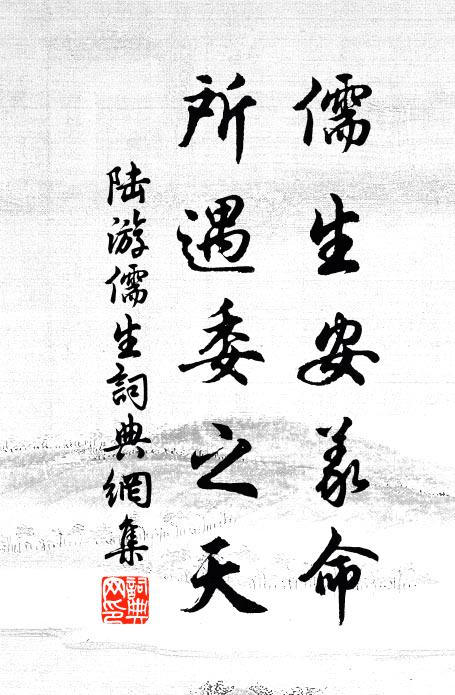 儒生安義命
所遇委之天
陆游儒生詞典網集
詞典网印